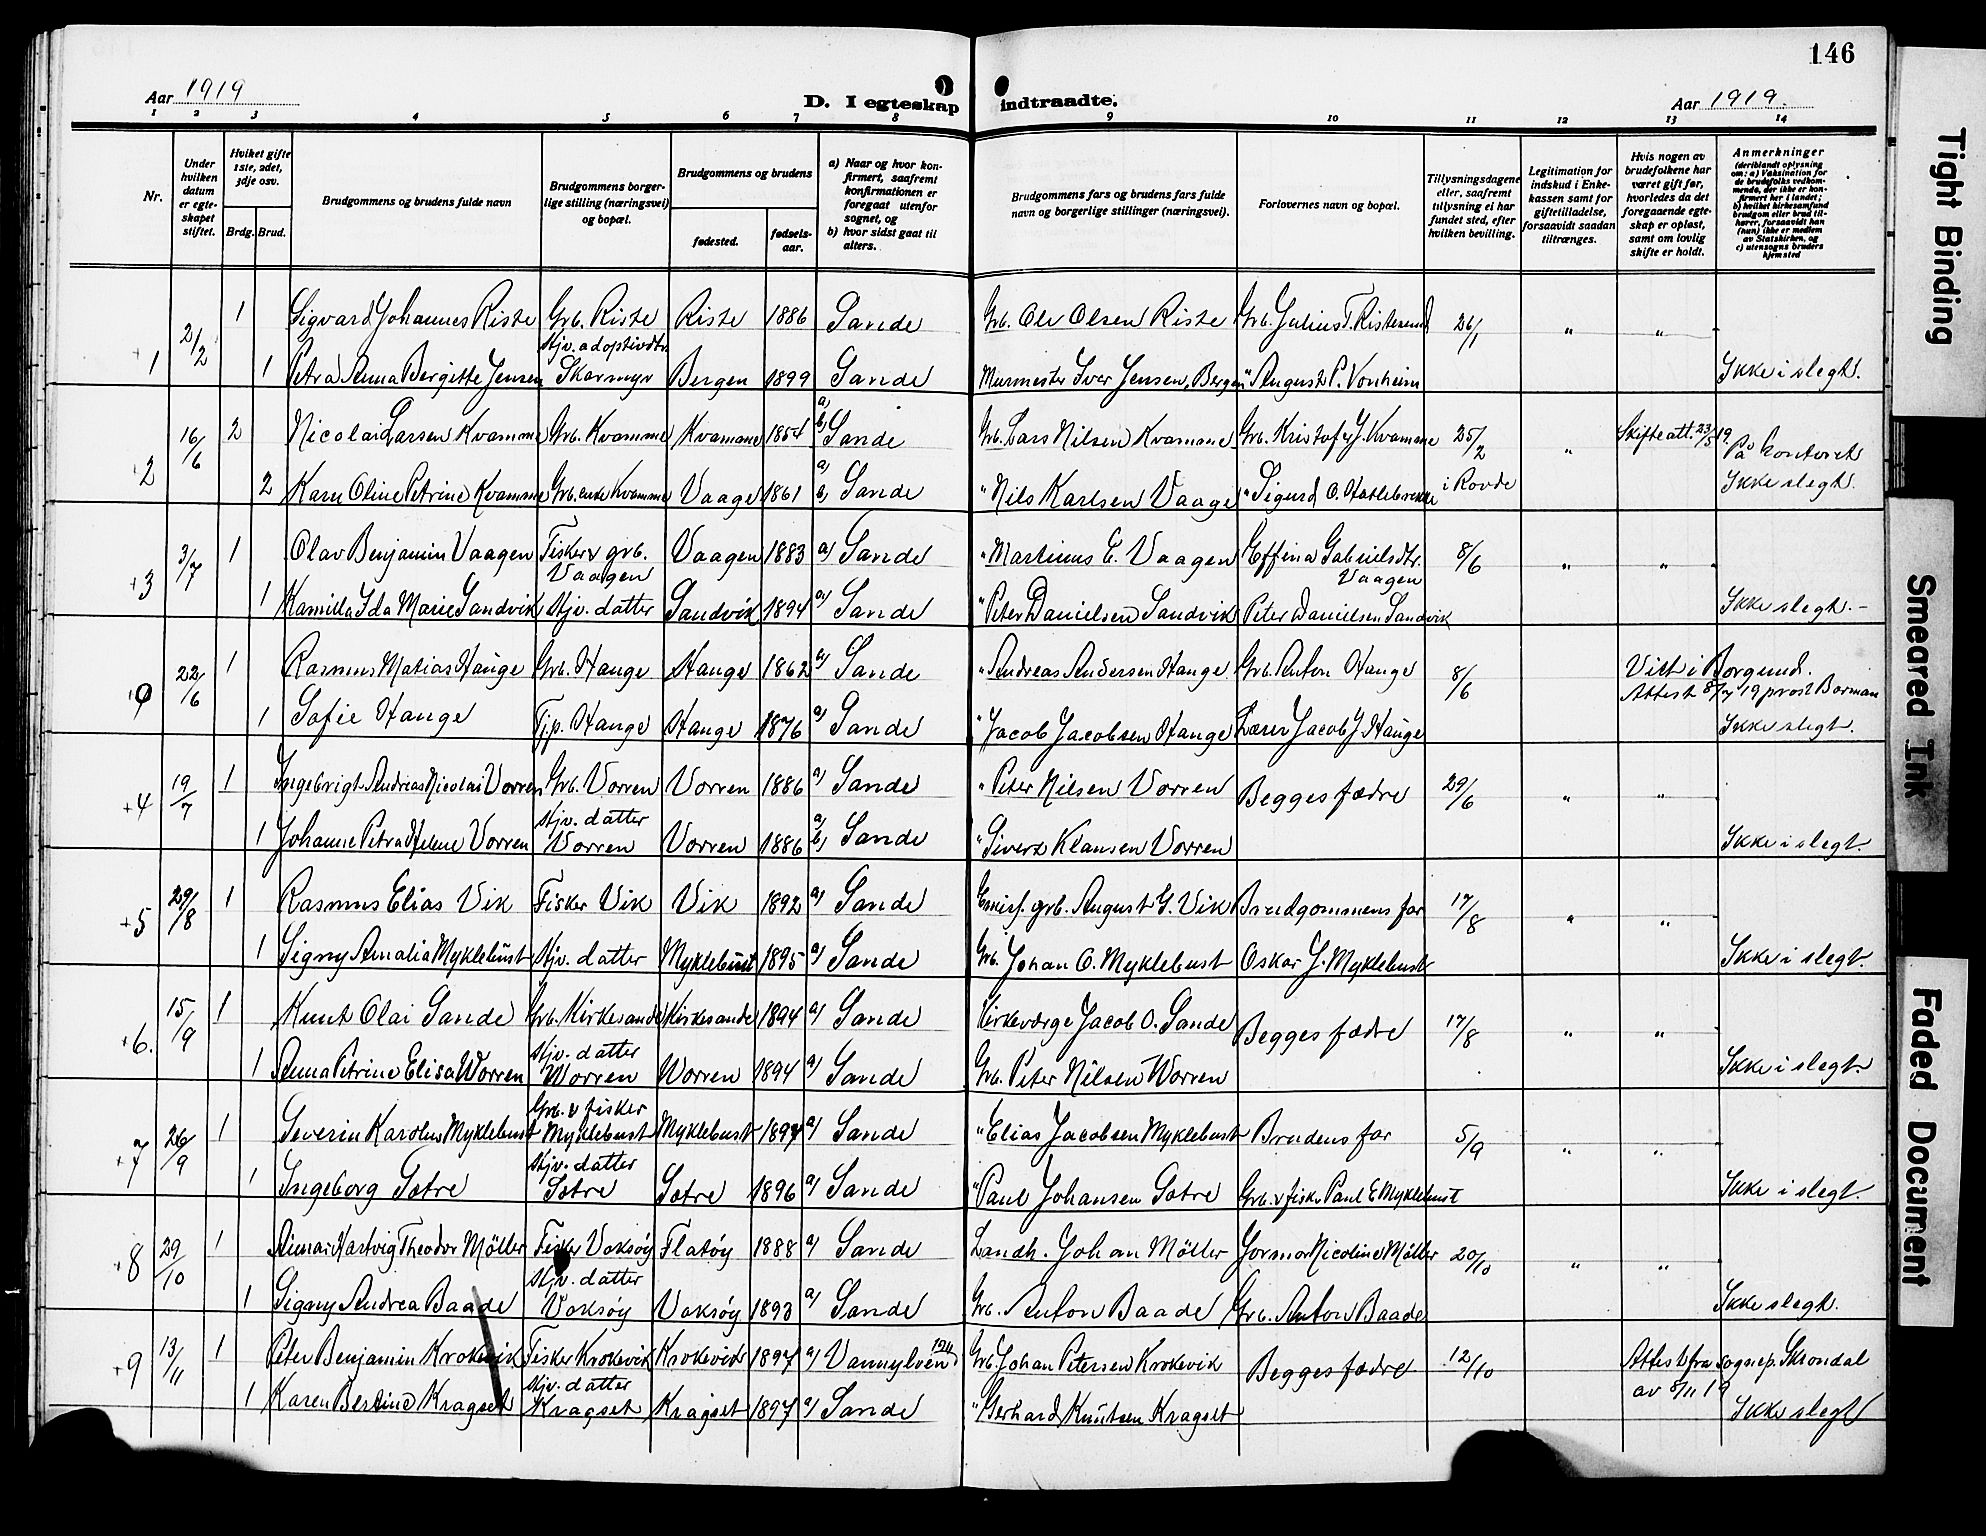 146
Aar 1919
D. I egteskap indtraadte.
Aar 1919.
1 2 3 4 5 6 7 8 9 10 11 12 13 14
Nr.
Under hvilken datum er egteskapet stiftet.
Hviket gifte 1ste, 2det, 3dje osv.
Brdg. Brud.
Brudgommens og brudens fulde navn
Brudgommens borgerlige stilling (næringsvei) og bopæl.
Brudgommens og brudens
fødested.
fødselsaar.
a) Naar og hvor konfirmert, saafremt konfirmationen er foregaat utenfor sognet, og
b) hvor sidst gaat til alters.
Brudgommens fars og brudens fars fulde navn og borgerlige stillinger (næringsvei).
Forlovernes navn og bopæl.
Tillysningsdagene eller, saafremt tillysning ei har fundet sted, efter hvilken bevilling.
Legitimation for indskud i Enkekassen samt for giftetilladelse, forsaavidt saadan tiltrænges.
Hvis nogen av brudefolkene har været gift før, hvorledes da det foregaaende egteskap er opløst, samt om lovlig skifte er holdt.
Anmerkninger (deriblandt oplysning om: a) Vaksination for de brudefolks vedkommende, der ikke er konfirmert her i landet; b) hvilket kirkesamfund brudgom eller brud tilhører, forsaavidt han (hun) ikke er medlem av Statskirken, og c) utensogns bruders hjemsted
1 2/2 1 Sigvard Johannes Riste Grb. Riste Riste 1886 Sande Grb. Ole Olsen Riste Grb. Julius T. Ristesund 26/1 " "
1 Petra Anna Bergitte Jensen Stjv. adoptivdtr. Skarmyr Bergen 1899 Sande Murmester Iver Jensen, Bergen " August P. Vonheim Ikke i slegt.
2 16/6 2 Nicolai Larsen Kvamme Grb. Kvamme Kvamme 1854 a) b) Sande Grb. Lars Nilsen Kvamme Grb. Kristofer J. Kvamme 25/2 " Skifteatt. 23/5 19. På kontoret
2 Karn Oline Petrine Kvamme Grb. enke Kvamme Vaage 1861 a) b) Sande " Nils Karlsen Vaage " Sigurd O. Hatlebrekke i Rovde Ikke slegt.
+3 3/7 1 Olav Benjamin Vaagen Fisker & grb. Vaagen Vaagen 1883 a) Sande " Martinus E. Vaagen Effina Gabrielsdtr. Vaagen 8/6 " " "
1 Kamilla Ida Marie Sandvik Stjv. datter Sandvik 1894 a) Sande " Peter Danielsen Sandvik Peter Danielsen Sandvik Ikke slegt.
22/6 1 Rasmus Matias Hauge Grb. Hauge Hauge 1862 a) Sande " Andreas Andersen Hauge Grb. Anton Hauge 8/6 Viet i Borgund. Attest 8/7 19 prost Barman
1 Sofie Hauge Tjp. Hauge Hauge 1876 a) Sande " Jacob Jacobsen Hauge Lærer Jacob J. Hauge Ikke slegt.
+4 19/7 1 Ingebrigt Andreas Nicolai Vorren Grb. Vorren Vorren 1886 a) Sande " Peter Nilsen Vorren Begges fædre 29/6 " "
1 Johanne Petra Helene Vorren Stjv. datter Vorren Vorren 1886 a) b) Sande " Sivert Klausen Vorren Ikke i slegt.
+5 29/8 1 Rasmus Elias Vik Fisker Vik Vik 1892 a) Sande Emisf. grb. August G. Vik Brudgommens far 17/8 " "
1 Signy Amalia Myklebust Stjv. datter Myklebust 1895 a) Sande Grb. Johan O. Myklebust Oskar J. Myklebust Ikke i slegt.
+6. 15/9 1 Knut Olai Sande Grb. Kirkesande Kirkesande 1894 a) Sande Kirkeværge Jacob O. Sande Begges fædre 17/8 " "
1 Anna Petrine Elisa Worren Stjv. datter Worren Worren 1894 a) Sande Grb. Peter Nilsen Worren Ikke i slegt.
+7 26/9 1 Severin Karolus Myklebust Grb. & fisker Myklebust Myklebust 1894 a) Sande " Elias Jacobsen Myklebust Brudens far 5/9 " "
1 Ingeborg Sætre Stjv. datter Sætre Sætre 1896 a) Sande " Paul Johansen Sætre Grb. & fisker Paul E Myklebust Ikke i slegt.
+8 29/10 1 Einar Hartvig Theodor Möller Fisker Voksøy Flatøy 1888 a) Sande Landh. Johan Möller Jormor Nicoline Möller 20/10 " "
1 Signy Andrea Baade Stjv. datter Voksøy Voksøy 1893 a) Sande Grb. Anton Baade Grb. Anton Baade Ikke slegt.
+9 13/11 1 Peter Benjamin Krokevik Fisker Krokevik Krokevik 1897 a) Vannylven Grb. Johan Petersen Krokevik Begges fædre 12/10 Attest fra sognep. Skrondal av 8/11 19
1 Karen Bertine Kragset Stjv. datter Kragset Kragset 1897 a) Sande " Gerhard Knutsen Kragset Ikke slegt
Tight Binding
Smeared Ink
Faded Document